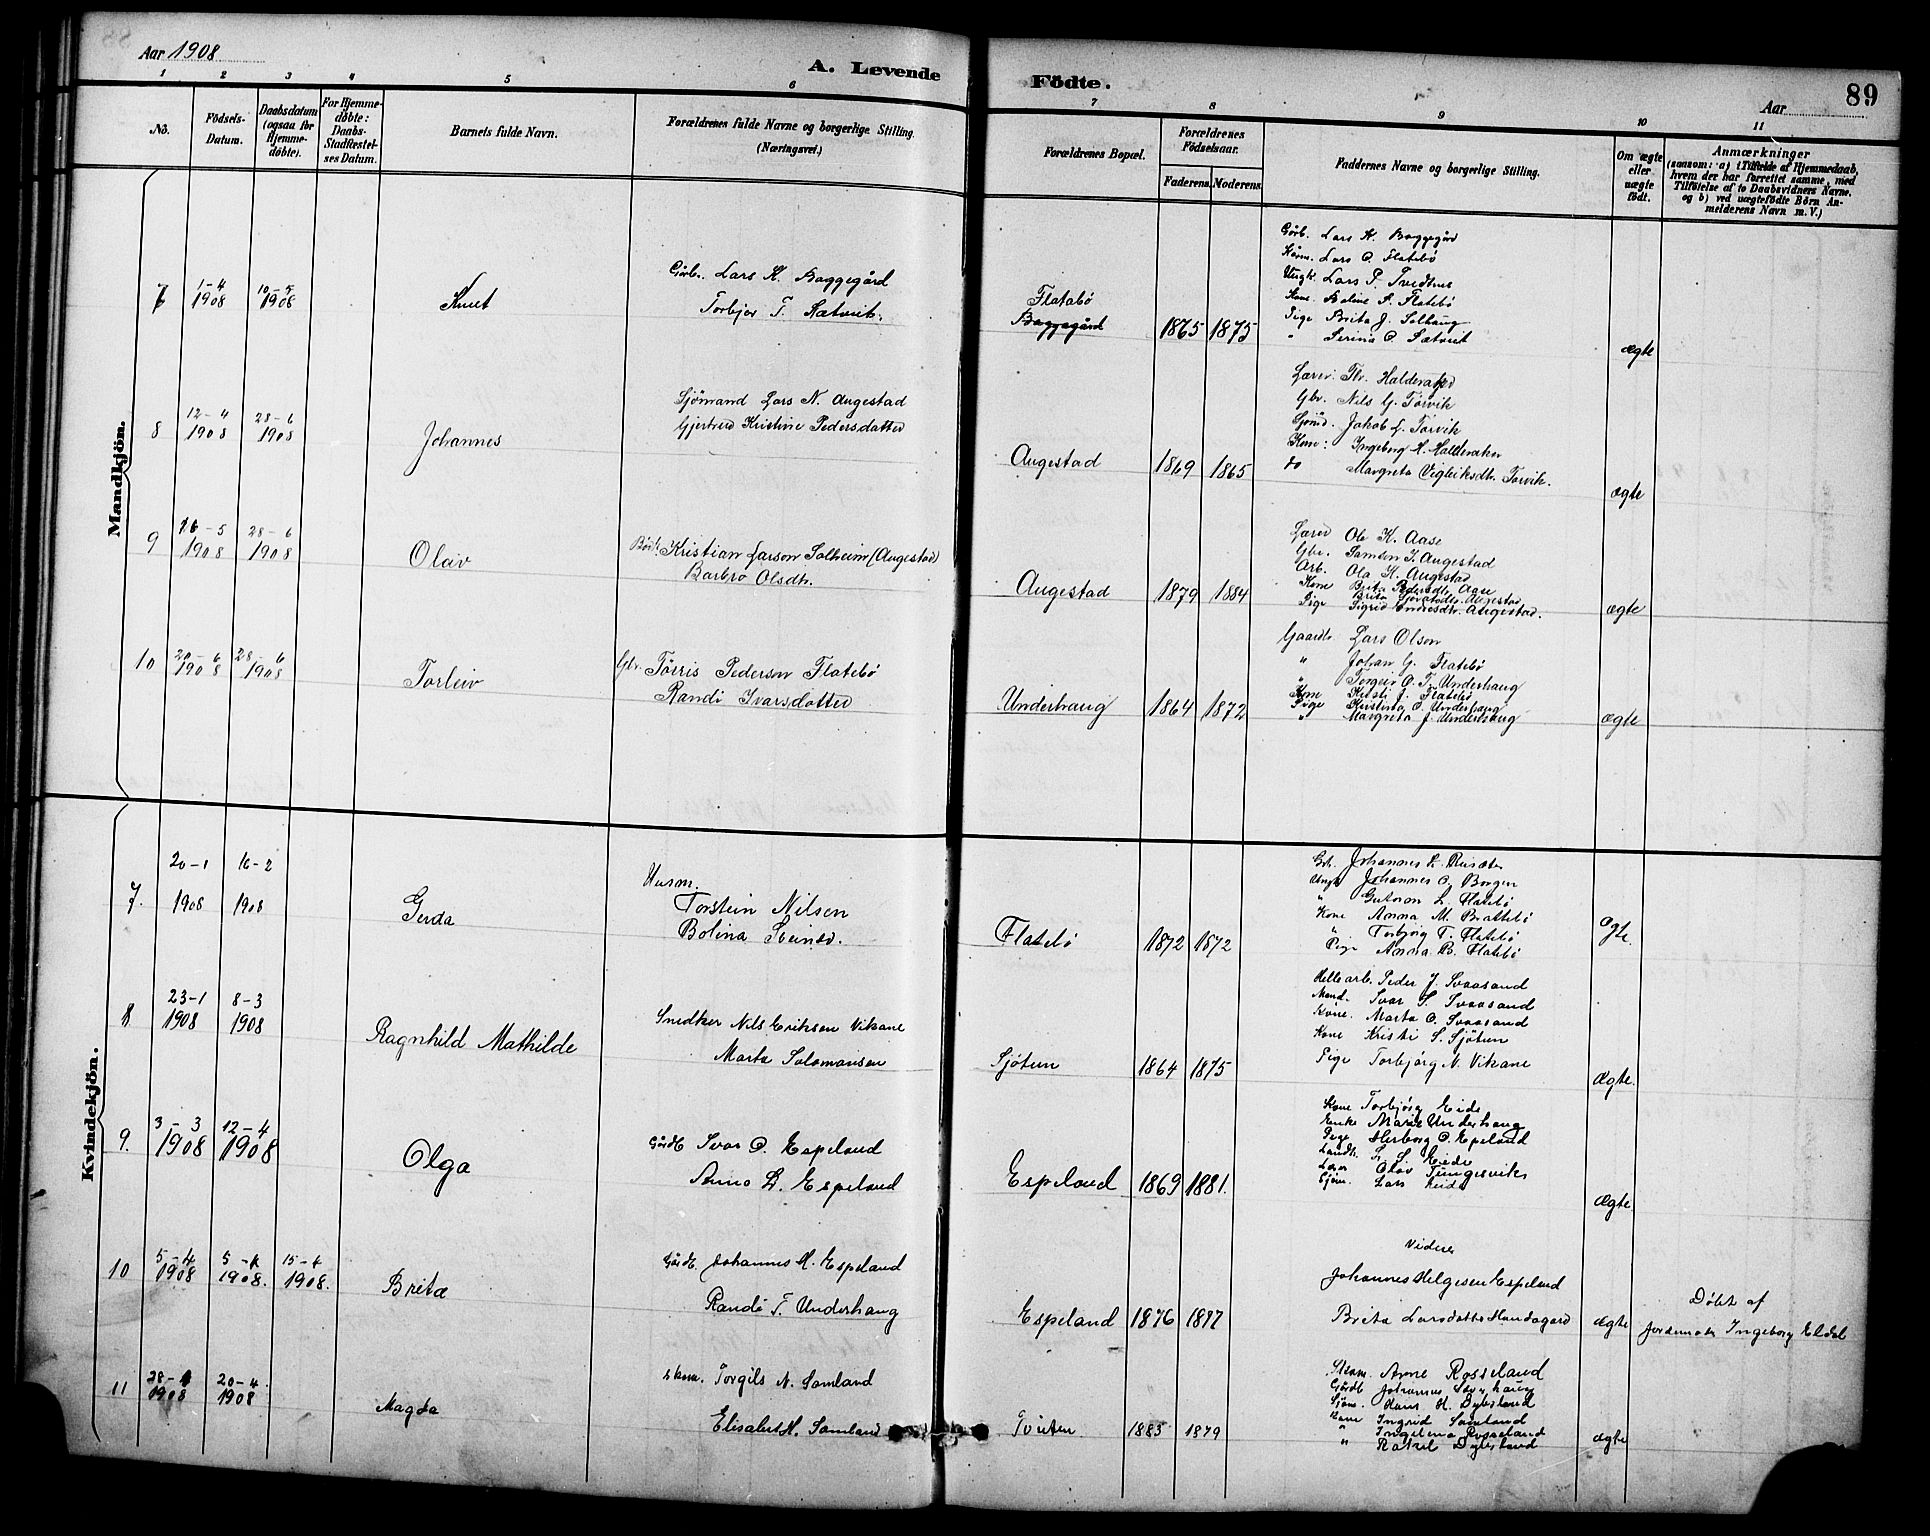 Aar 1908
A. Levende Födte.
Aar 89
1 2 3 4 5 6 7 8 9 10 11
No.
Födsels-Datum.
Daabsdatum (ogsaa for Hjemme-döbte).
For Hjemme-döbte: Daabs-Stadfæstel-ses Datum.
Barnets fulde Navn.
Forældrenes fulde Navne og borgerlige Stilling. (Næringsvei.)
Forældrenes Bopæl.
Forældrenes Födselsaar.
Faderens. Moderens.
Faddernes Navne og borgerlige Stilling.
Om ægte eller uægte födt.
Anmærkninger
(saasom: a) i Tilfælde af Hjemmedaab, hvem der har forrettet samme, med Tilföielse af to Daabsvidners Navne, og b) ved uægtefödte Börn An-melderens Navn m. V.)
Mandkjön.
7 1-4 1908 10-5 1908 Knut
Gårb. Lars K. Baggegård
Torbjør T. Sætveit.
Flatebö
Baggegård 1865 1875
Gårb. Lars H. Baggegård
Lars O. Flatebö
Ungk. Lars P. Tvedtnes
Kone Boline S. Flatebö
Pige Brita J. Solhaug
" Serina O. Sætveit
ægte
8 12-4 1908 28-6 1908 Johannes
Sjömand Lars N. Augestad
Gjertrud Kristine Pedersdatter
Augestad 1869 1865
Lærer Th. Halderaker
Gbr. Nils G. Torvik
Sjömd. Jakob L. Torvik
Kone: Ingeborg H. Halderaker
do Margreta Vigleiksdtr. Torvik.
ægte
9 16-5 1908 28-6 1908 Olav
Kristian Larson Solheim (Augestad)
Barbro Olsdtr.
Augestad 1879 1884
Lærer Ole K. Aase
Gbr. Samson I. Augestad
Arb. Ola K. Augestad
Kone Brita Pedersdtr. Aase
Pige Sigrid Endresdtr. Augestad.
ægte
10 20-6 1908 28-6 1908 Torleiv
Gbr. Törris Pederson Flatebö
Randi Ivarsdatter
Underhaug 1864 1872
Gaardb. Lars Olson
" Johan G. Flatebö
" Torgeir O. T. Underhaug
Kone Kristi J. Flatebö
Pige Kristina O. Underhaug
" Margreta J. Underhaug
ægte
Kvindekjön.
7. 20-1 1908 16-2 1908 Gerda
Husm. Torstein Nilsen
Bolina Steinsd.
Flatebö 1872 1872
Johannes O. Borgen
" Guttorm L. Flatebö
Kone Anna M. Brattebö
" Torbjörg T. Flatebö
Pige Anna B. Flatebö
Ægte.
8 23-1 1908 8-3 1908 Ragnhild Mathilde
Snedker Nils Eriksen Vikane
Marta Salomonsen
Sjötun 1864 1875
Hellearb. Peder J. Svaasand
Mand. Ivar S. Svaasand
Kone. Marta O. Svaasand
Kone Kristi S. Sjötun
Pige Torbjörg N. Vikane
Ægte.
9. 3-3 1908 12-4 1908 Olga
Gårdb. Ivar O. Espeland
Anna L. Espeland
Espeland 1869 1881.
Kone Torbjörg Eide
Enke Marie Underhaug
Pige Herborg O. Espeland
Landh. S. S. Eide
Lærer Olav Tungesvik
Sjöm. Lars Eide
Ægte.
10 5-4 1908 5-4 1908. 15-6 1908. Brita
Gårdb. Johannes H. Espeland
Randi T. Underhaug
Espeland 1876 1877
Vidner
Johannes Helgesen Espeland
Brita Larsdatter Handegard
ægte
Döbt af
Jordemoder Ingeborg Eldal
11 28-1 1908 20-4 1908 Magda
Torgils N. Samland
Elisabet H. Samland
Tveiten 1883 1879
Arne Rosseland
Gårdb. Johannes
Sjöm. Hans H. Dybsland
Kone Ingrid Samland
" Ingelina Rosseland
" Rakel Dybsland
ægte